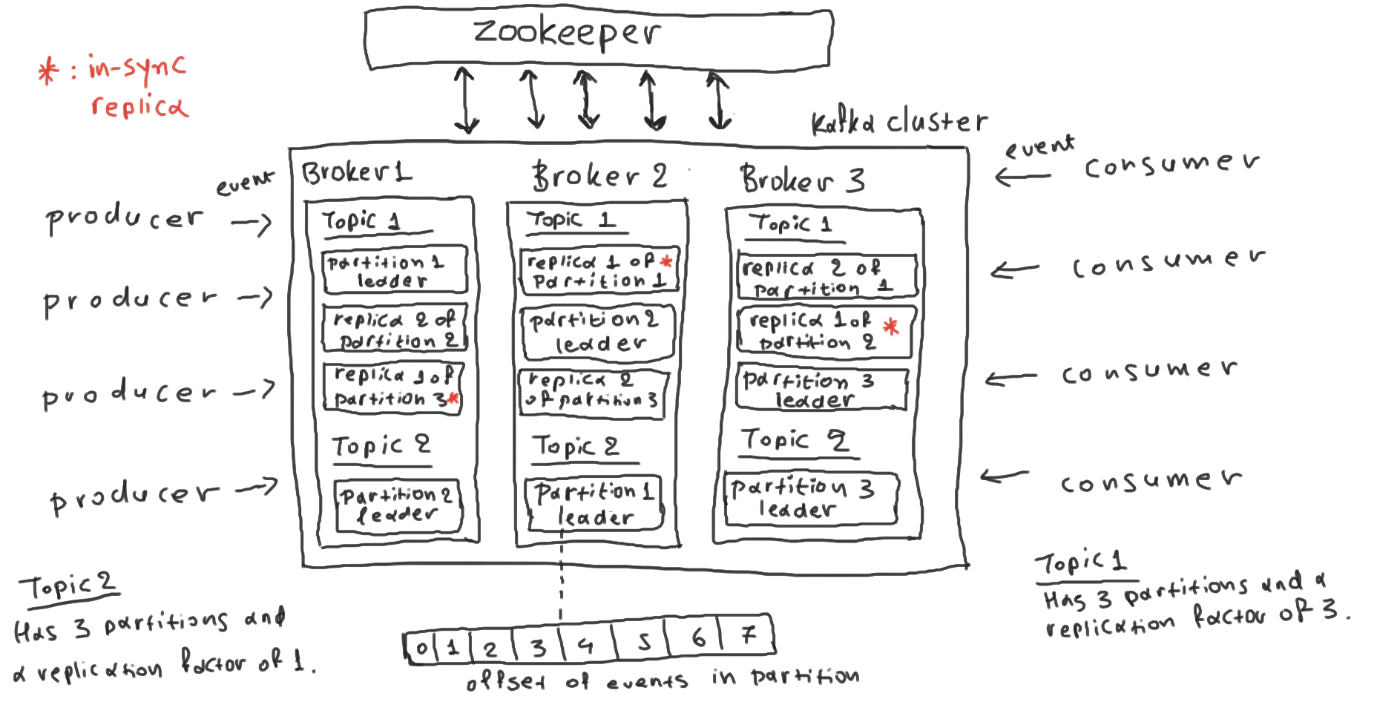 zookeeper
* : in-sync
replica
Kafka cluster
event
producer
producer
producer
producer
Broker 1
Topic 1
partition 1
leader
replica 2 of
partition 2
replica 1 of
partition 3 *
Topic 2
partition 2
leader
Broker 2
Topic 1
replica 1 of *
partition 1
partition 2
leader
replica 2
of partition 3
Topic 2
partition 1
leader
Broker 3
Topic 1
replica 2 of
partition 1
replica 1 of *
partition 2
partition 3
leader
Topic 2
partition 3
leader
event
consumer
consumer
consumer
consumer
Topic 2
Has 3 partitions and
a replication factor of 1.
0 1 2 3 4 5 6 7
offset of events in partition
Topic 1
Has 3 partitions and a
replication factor of 3.